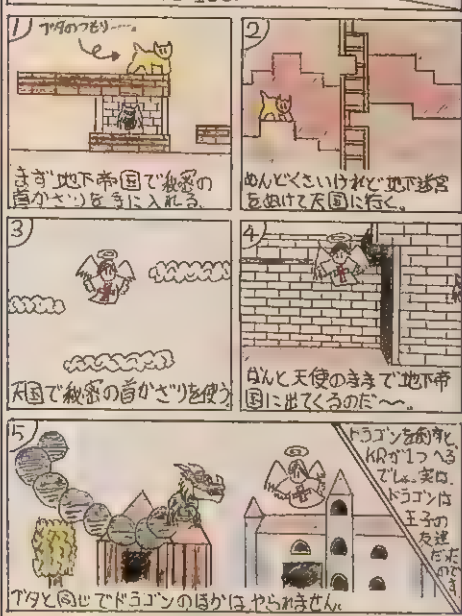 1)
ブタのつもり〜。
まず地下帝国で秘密の
首かざりを手に入れる。
2)
めんどくさいけれど地下迷宮
をぬけて天国に行く。
3)
天国で秘密の首かざりを使う
4)
なんと天使のままで地下帝
国に出てくるのだ〜。
5)
ドラゴンを倒すと、
KRが1つへる
でしょ。実は、
ドラゴンは
王子の
友達
だったの
です
ブタと同じでドラゴンのほかは、やられません。